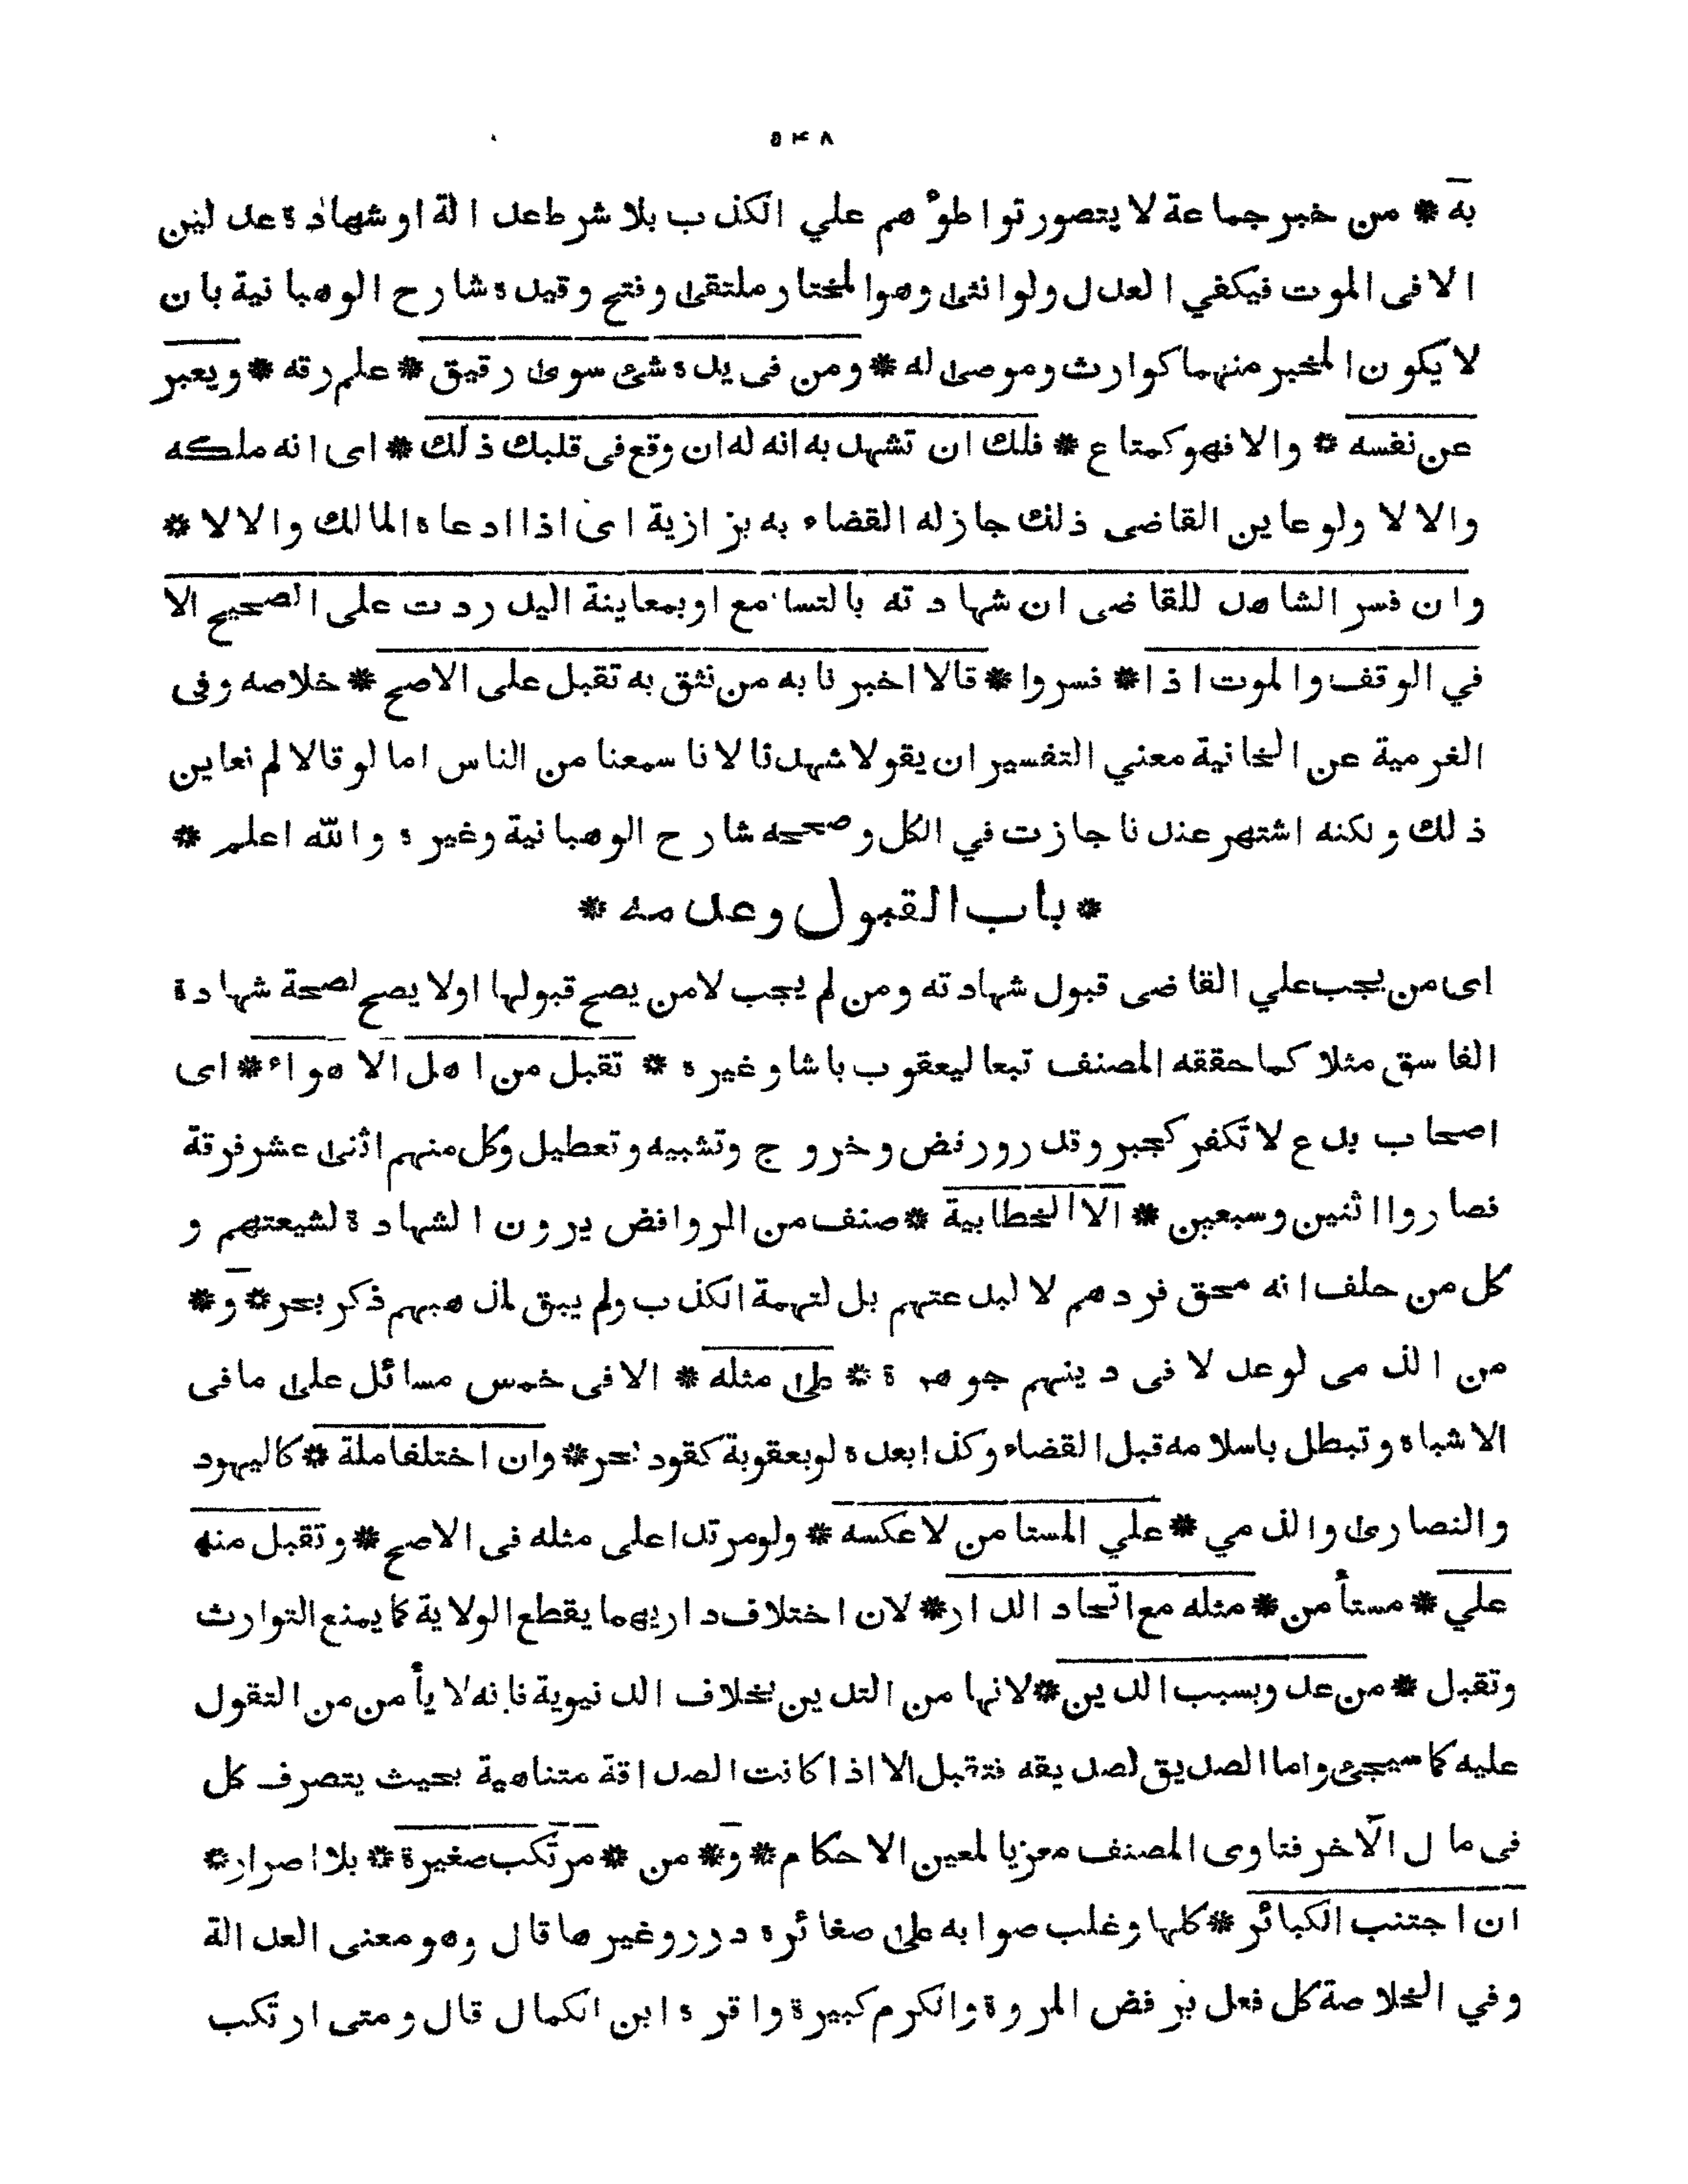 ۵۴۸
به * من خبر جماعة لا يتصور تواطؤهم علي الكذب بلا شرط عدالة او شهادة عدلين
الا فى الموت فيكفي العدل ولو انثى وهو المختار ملتقى وفتح وقيده شارح الوهبانية بان
لا يكون المخبر منهما كوارث وموصى له * ومن فى يده شئ سوى رقيق * علم رقه * ويعبر
عن نفسه * والا فهو كمتاع * فلك ان تشهد به انه له ان وقع فى قلبك ذلك * اى انه ملكه
والا لا ولو عاين القاضى ذلك جاز له القضاء به بزازية اى اذا ادعاه المالك والا لا *
وان فسر الشاهد للقاضى ان شهادته بالتسامع او بمعاينة اليد ردت على الصحيح الا
في الوقف والموت اذا * فسروا * قالا اخبرنا به من نثق به تقبل على الاصح * خلاصه وفى
الغرمية عن الخانية معني التفسير ان يقولا شهدنا لانا سمعنا من الناس اما لو قالا لم نعاين
ذلك ولكنه اشتهر عندنا جازت في الكل وصححه شارح الوهبانية وغيره والله اعلم *
* باب القبول وعدمه *
اى من يجب علي القاضى قبول شهادته ومن لم يجب لا من يصح قبولها اولا يصح لصحة شهادة
الفاسق مثلا كما حققه المصنف تبعا ليعقوب باشا وغيره * تقبل من اهل الاهواء * اى
اصحاب بدع لا تكفر كجبر وقدر ورفض وخروج وتشبيه وتعطيل وكل منهم اثنى عشر فرقة
فصاروا اثنين وسبعين * الا الخطابية * صنف من الروافض يرون الشهادة لشيعتهم و
كل من حلف انه محق فردهم لا لبدعتهم بل لتهمة الكذب ولم يبق لمذهبهم ذكر بحر * و *
من الذمى لو عدلا فى دينهم جوهرة * على مثله * الا فى خمس مسائل على ما فى
الاشباه وتبطل باسلامه قبل القضاء وكذا بعده لو بعقوبة كقود بحر * وان اختلفا ملة * كاليهود
والنصارى والذمي * علي المستامن لا عكسه * ولو مرتدا على مثله فى الاصح * وتقبل منه
علي * مستأمن * مثله مع اتحاد الدار * لان اختلاف داريهما يقطع الولاية كما يمنع التوارث
وتقبل * من عدو بسبب الدين * لانها من التدين بخلاف الدنيوية فانه لا يأمن من التقول
عليه كما سيجئ واما الصديق لصديقه فتقبل الا اذا كانت الصداقة متناهية بحيث يتصرف كل
فى مال الآخر فتاوى المصنف معزيا لمعين الاحكام * و * من * مرتكب صغيرة * بلا اصرار *
ان اجتنب الكبائر * كلها وغلب صوابه على صغائره درر وغيرها قال وهو معنى العدالة
وفي الخلاصة كل فعل يرفض المروة والكرم كبيرة واقره ابن الكمال قال ومتى ارتكب